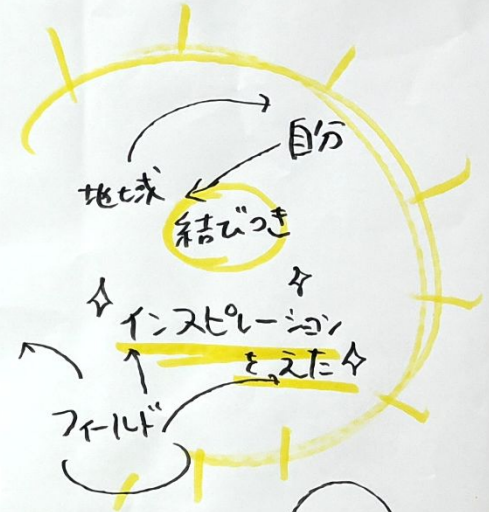 自分
地域
結びつき
インスピレーション
を、えた
フィールド